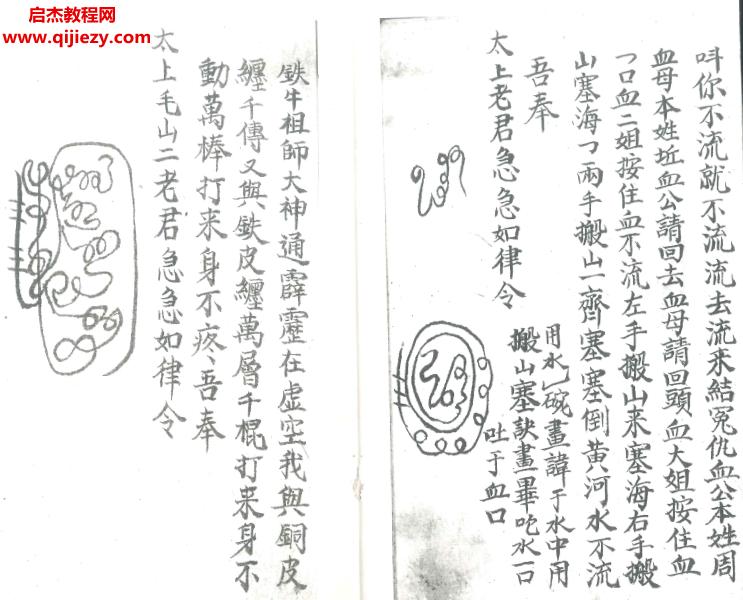 启杰教程网
www.qijiezy.com
呌你不流就不流流去流来結冤仇血公本姓周
血母本姓坵血公請回去血母請回頭血大姐按住血
口血二姐按住血不流左手搬山来塞海右手搬
山塞海兩手搬山一齊塞塞倒黄河水不流
吾奉
太上老君急急如律令
用水一碗畫諱于水中用
搬山塞訣畫畢吃水一口
吐于血口
鉄牛祖師大神通霹靂在虛空我與銅皮
纏千傳又與鉄皮纏萬層千棍打来身不
動萬棒打来身不疼吾奉
太上毛山二老君急急如律令